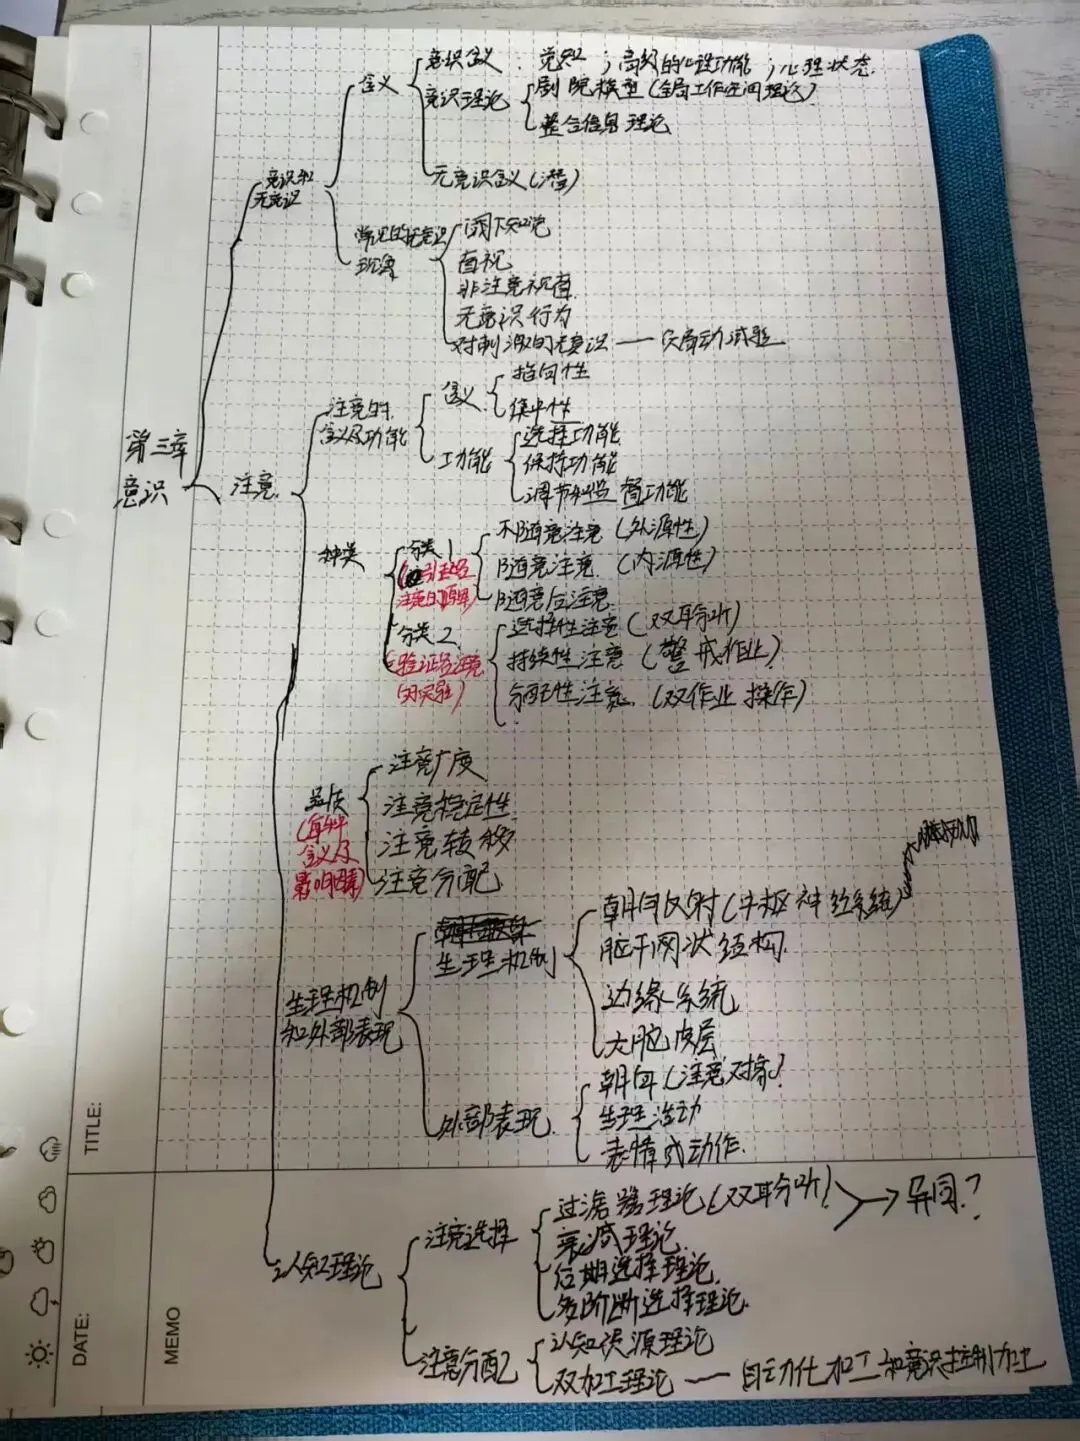 意识含义：觉知；高级的心理功能；心理状态
含义
意识理论
剧院模型（全局工作空间理论）
整合信息理论
无意识含义（潜）
意识和
无意识
常见的无意识
现象
阈下知觉
盲视
非注意视盲
无意识行为
对刺激的无意识——仪启动试验
注意的
含义及功能
含义
指向性
集中性
功能
选择功能
保持功能
调节和监督功能
第三章
意识
注意
种类
分类1
（引起各
注意的原因）
不随意注意（外源性）
随意注意（内源性）
随意后注意
分类2
（验证各注意
的实验）
选择性注意（双耳分听）
持续性注意（警戒作业）
分配性注意（双作业操作）
品质
（每种
含义及
影响因素）
注意广度
注意稳定性
注意转移
注意分配
生理机制
和外部表现
生理机制
朝向反射（中枢神经系统）
脑干网状结构
边缘系统
大脑皮层
外部表现
朝向（注意对象）
生理活动
表情或动作
认知理论
注意选择
过滤器理论（双耳分听）
衰减理论
后期选择理论
多阶断选择理论
→异同？
注意分配
认知资源理论
双加工理论——自动化加工和意识控制加工
TITLE:
DATE:
MEMO